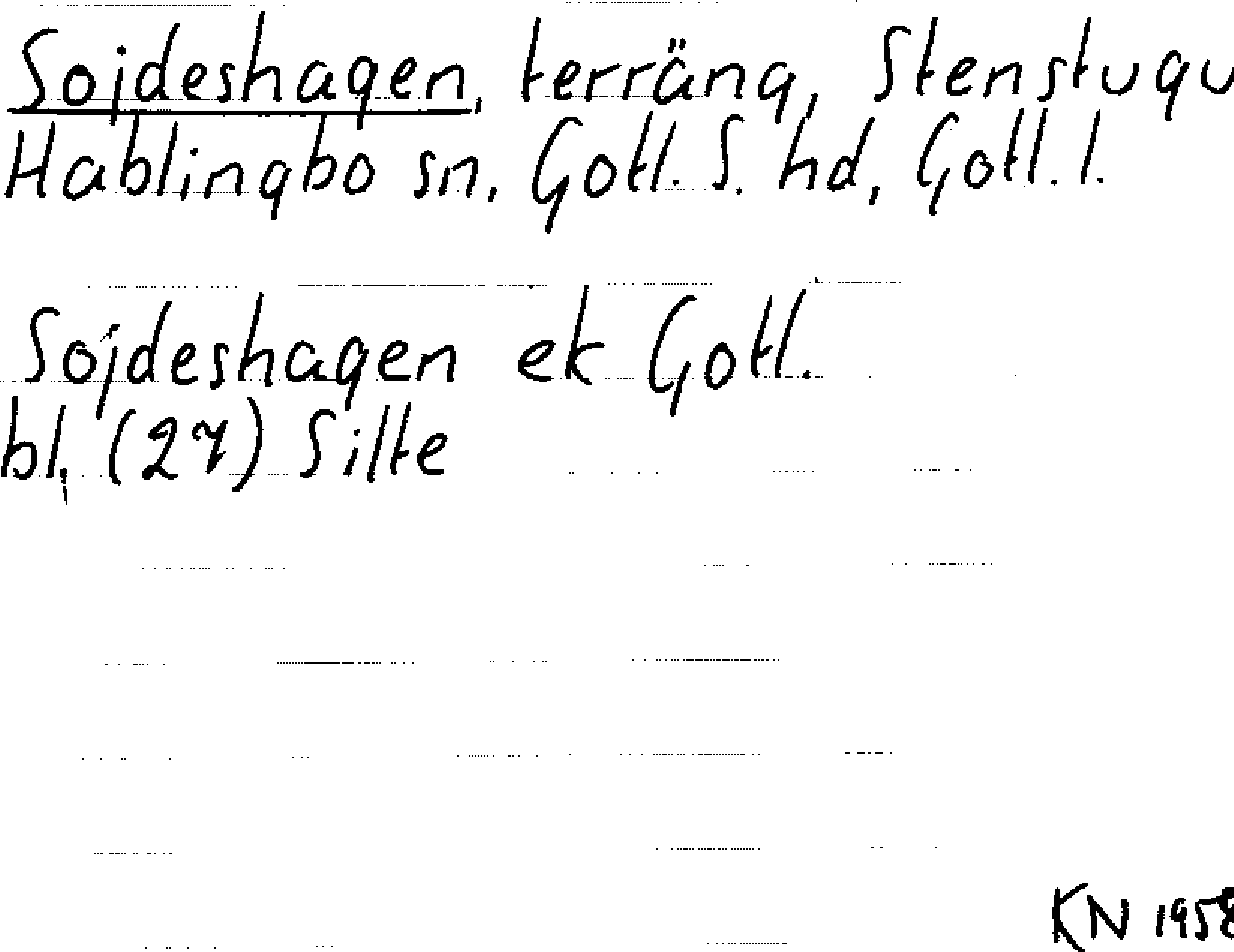 Sojdeshagen, terräng, Stenstugu
Hablingbo sn, Gotl. S. hd, Gotl. l.
Sojdeshagen ek Gotl.
bl. (27) Silte
KN 1958